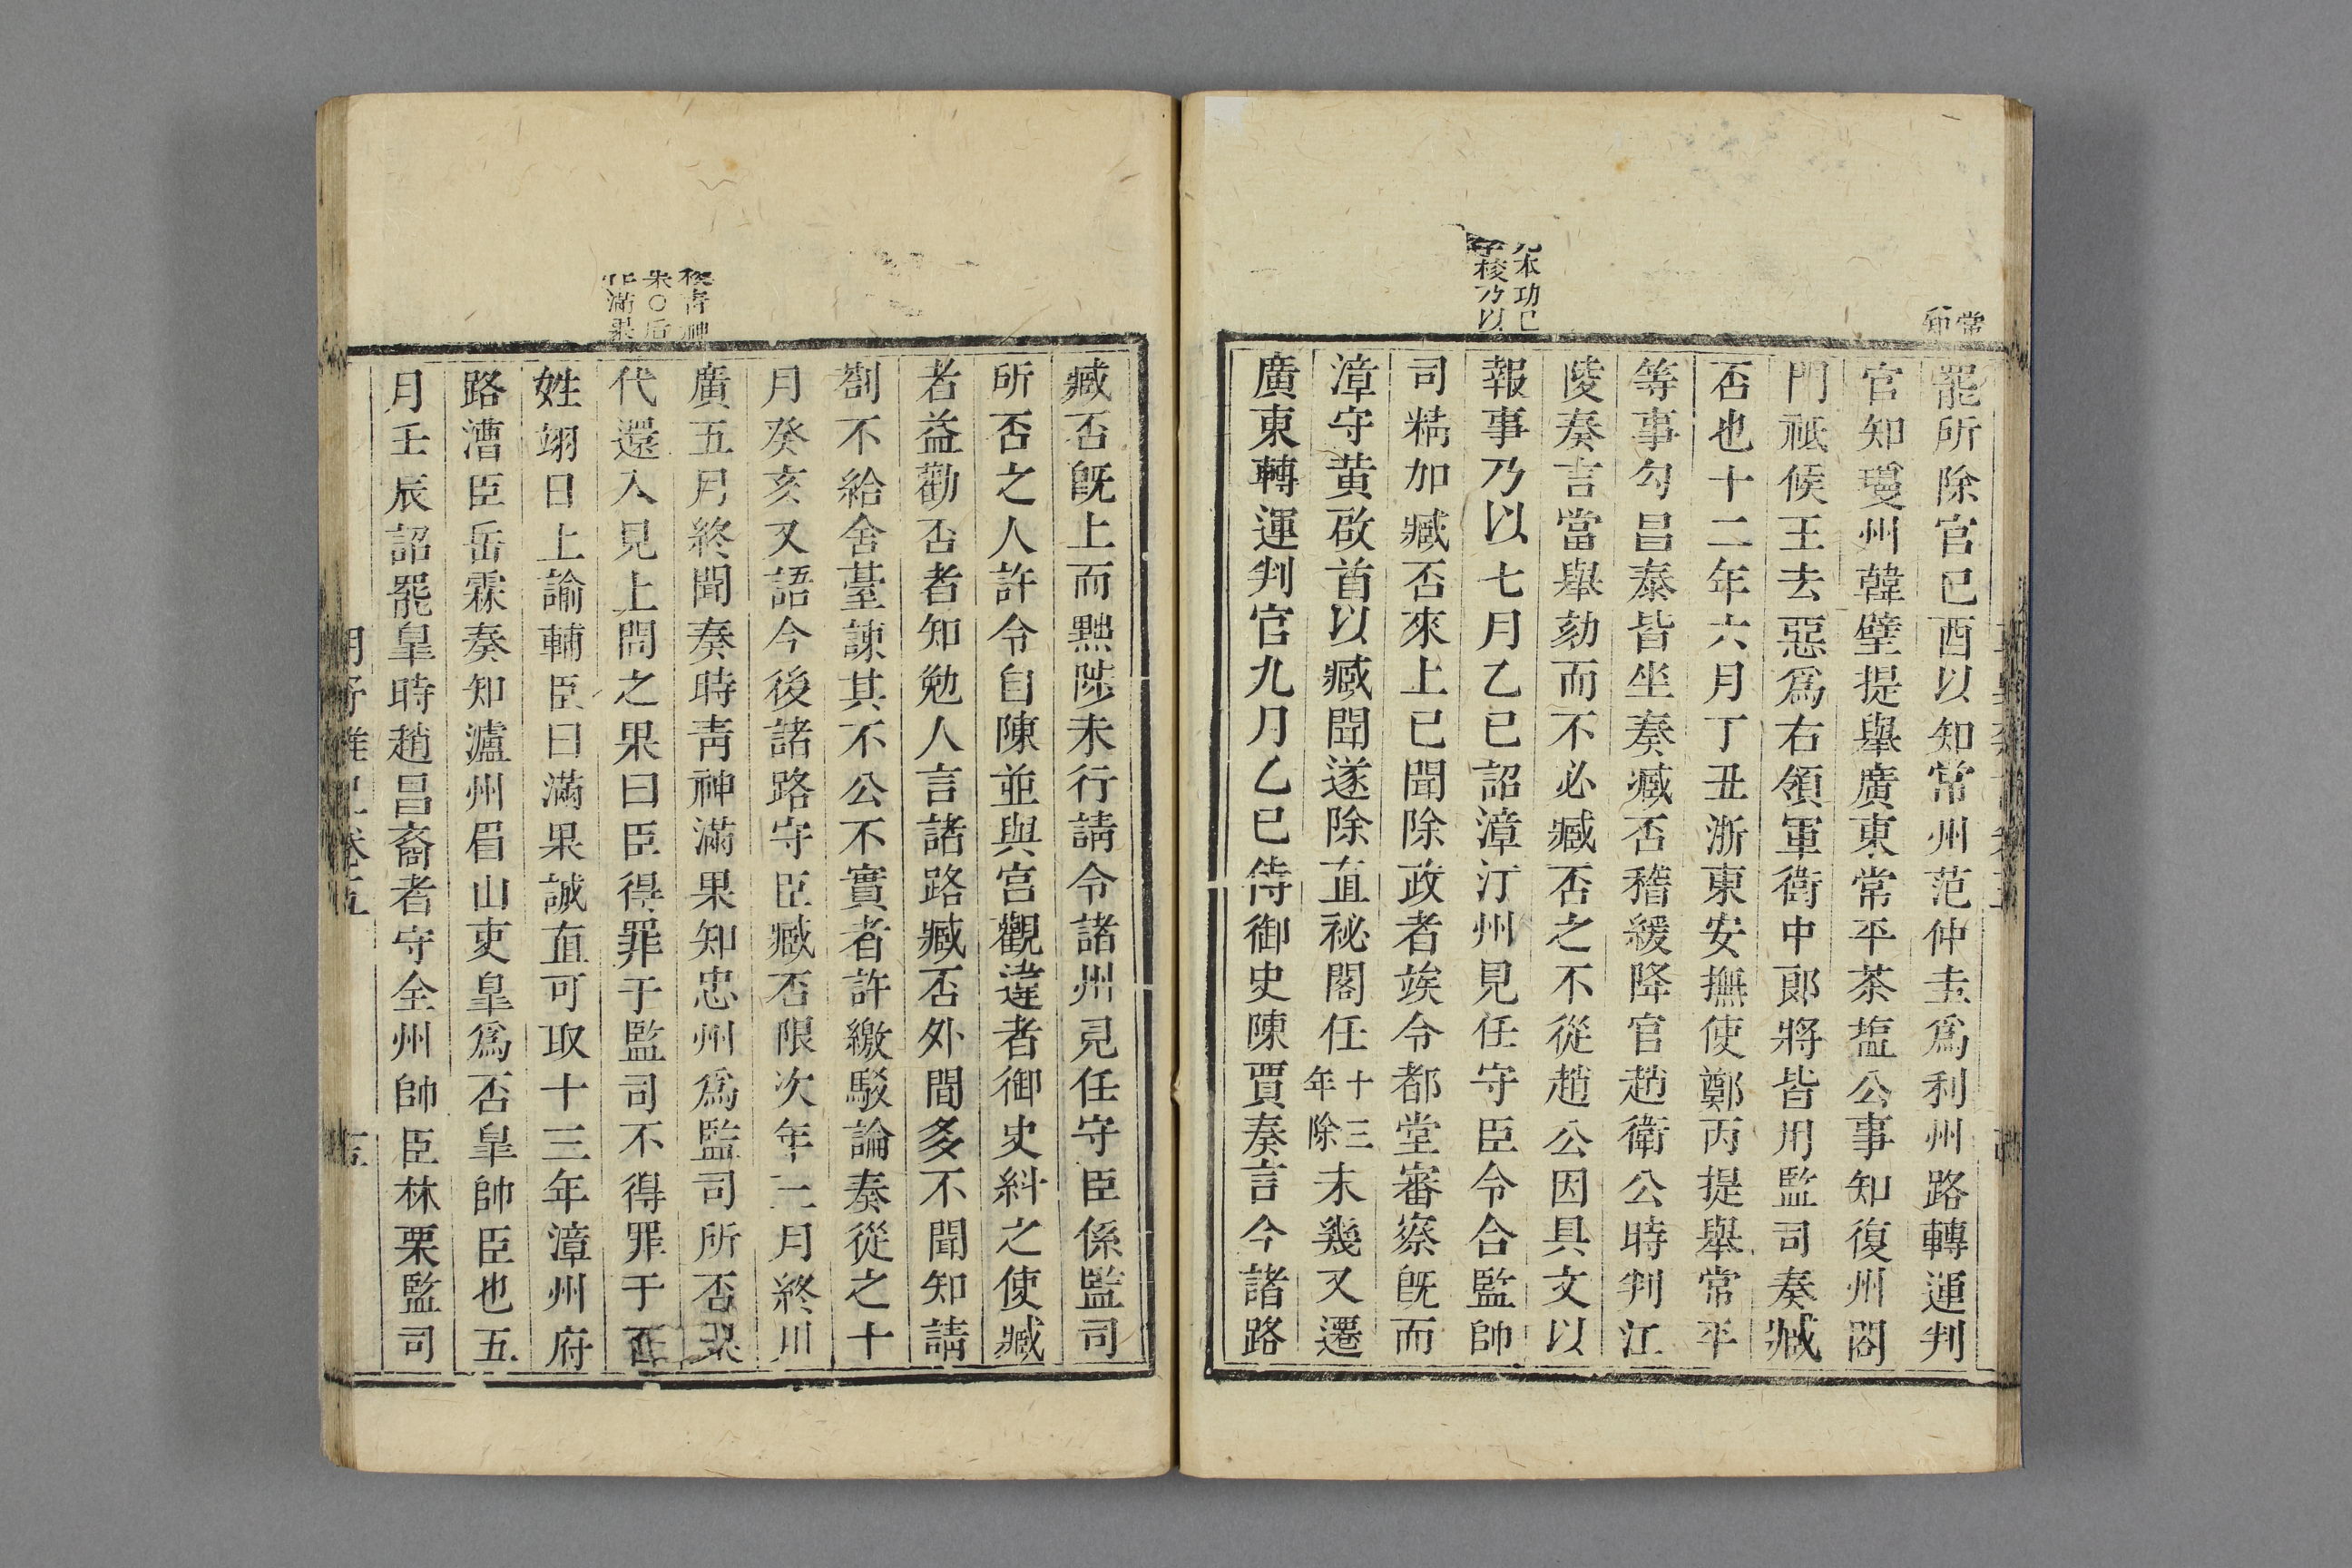 罷所除官已酉以知常州范仲圭爲利州路轉運判
官知瓊州韓璧提舉廣東常平茶塩公事知復州閤
門祗候王去惡爲右領軍衛中郎將皆用監司奏臧
否也十二年六月丁丑浙東安撫使鄭丙提舉常平
等事勾昌泰皆坐奏臧否稽緩降官趙衛公時判江
陵奏言當舉劾而不必臧否之不從趙公因具文以
報事乃以七月乙巳詔漳汀州見任守臣令合監帥
司精加臧否來上已聞除政者竢令都堂審察旣而
漳守黄啟首以臧聞遂除直祕閣任十三年除未幾又遷
廣東轉運判官九月乙巳侍御史陳賈奏言今諸路
臧否旣上而黜陟未行請令諸州見任守臣係監司
所否之人許令自陳並與宫觀違者御史糾之使臧
者益勸否者知勉人言諸路臧否外間多不聞知請
劄不給舍䑓諫其不公不實者許繳駁論奏從之十
月癸亥又語今後諸路守臣臧否限次年二月終川
廣五月終聞奏時靑神滿果知忠州爲監司所否果
代還入見上問之果曰臣得罪于監司不得罪于百
姓翊日上諭輔臣曰滿果誠直可取十三年漳州府
路漕臣岳霖奏知瀘州眉山吏臯爲否臯帥臣也五
月壬辰詔罷臯時趙昌裔者守全州帥臣林栗監司
常
知
本功已
字核乃以